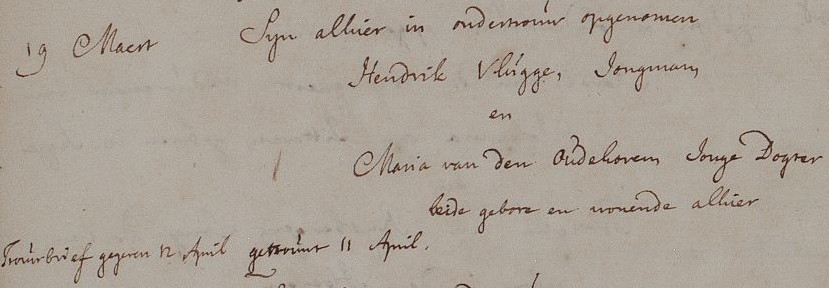 19 Maert Syn alhier in ondertrouw opgenomen
Hendrik Vlugge, Jongman,
en
Maria van den Oudehoven Jonge Dogter
beide gebore en wonende alhier
Trouwbrief gegeven 12 April getrouwt 11 April.